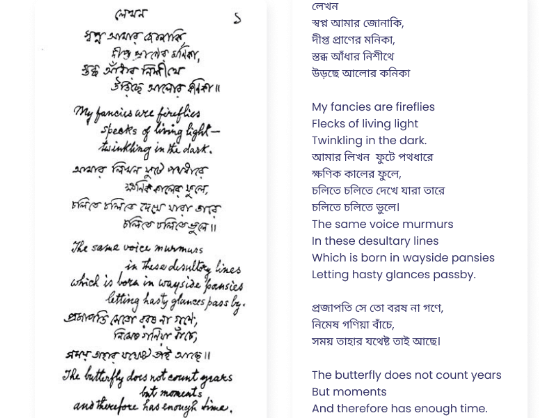 লেখন ১
স্বপ্ন আমার জোনাকি,
দীপ্ত প্রাণের মণিকা,
স্তব্ধ আঁধার নিশীথে
উড়িছে আলোর কণিকা॥
My fancies are fireflies
specks of living light—
twinkling in the dark.
আমার লিখন ফুটে পথধারে
ক্ষণিক কালের ফুলে,
চলিতে চলিতে দেখে যারা তারে
চলিতে চলিতে ভুলে॥
The same voice murmurs
in these desultory lines
which is born in wayside pansies
letting hasty glances pass by.
প্রজাপতি সেতো বরষ না গণে,
নিমেষ গণিয়া বাঁচে,
সময় তাহার যথেষ্ট তাই আছে॥
The butterfly does not count years
but moments
and therefore has enough time.
লেখন
স্বপ্ন আমার জোনাকি,
দীপ্ত প্রাণের মনিকা,
স্তব্ধ আঁধার নিশীথে
উড়ছে আলোর কনিকা
My fancies are fireflies
Flecks of living light
Twinkling in the dark.
আমার লিখন ফুটে পথধারে
ক্ষণিক কালের ফুলে,
চলিতে চলিতে দেখে যারা তারে
চলিতে চলিতে ভুলে।
The same voice murmurs
In these desultary lines
Which is born in wayside pansies
Letting hasty glances passby.
প্রজাপতি সে তো বরষ না গণে,
নিমেষ গণিয়া বাঁচে,
সময় তাহার যথেষ্ট তাই আছে।
The butterfly does not count years
But moments
And therefore has enough time.